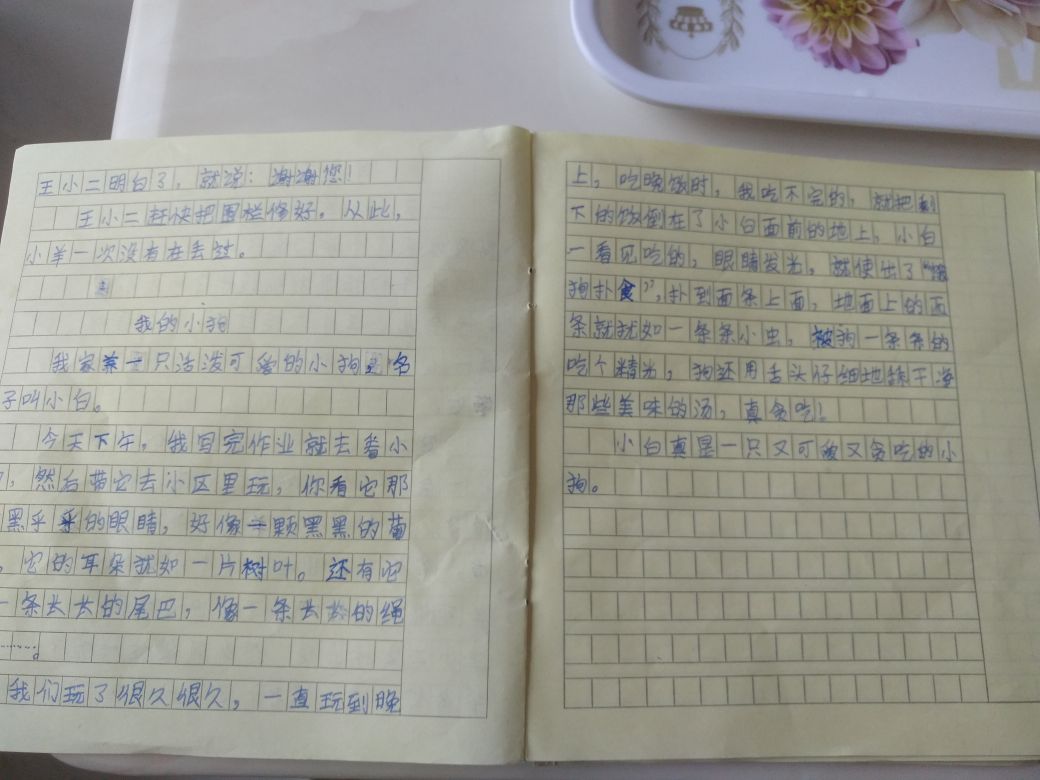 王小二明白了，就说：谢谢您！
王小二赶快把围栏修好。从此，
小羊一次没有在丢过。
我的小狗
我家养一只活泼可爱的小狗，名
子叫小白。
今天下午，我写完作业就去看小
，然后带它去小区里玩，你看它那
黑乎乎的眼睛，好像一颗黑黑的葡
，它的耳朵犹如一片树叶。还有它
一条长长的尾巴，像一条长长的绳
……。
我们玩了很久很久，一直玩到晚
上，吃晚饭时，我吃不完的，就把剩
下的饭倒在了小白面前的地上，小白
一看见吃的，眼睛发光，就使出了“饿
狗扑食”，扑到面条上面，地面上的面
条就犹如一条条小虫，被狗一条条的
吃个精光，狗还用舌头仔细地舔干净
那些美味的汤，真贪吃！
小白真是一只又可爱又贪吃的小
狗。